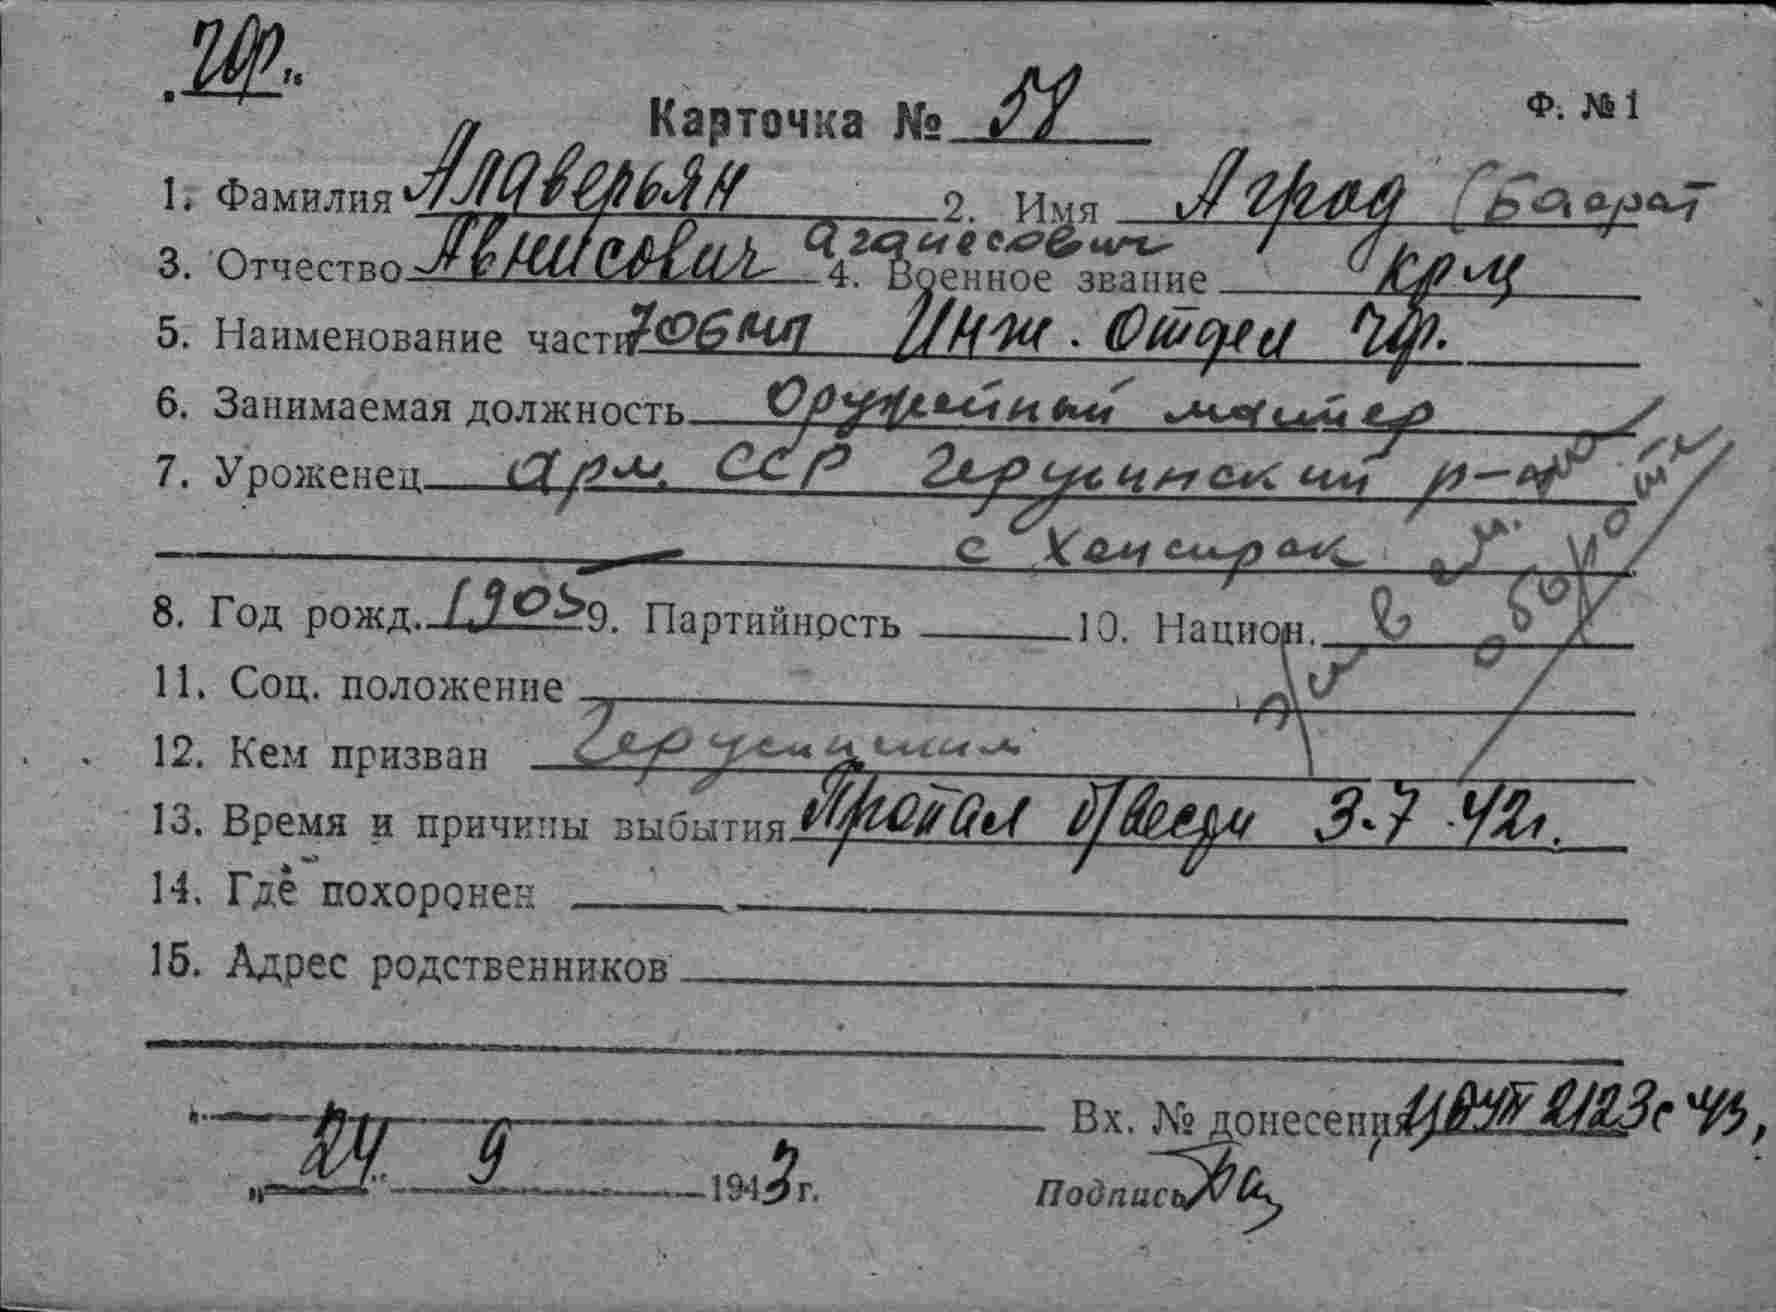 ЧФ.
Карточка № 58 Ф. № 1
1. Фамилия Алаверьян 2. Имя Аград (Баграт
3. Отчество Авнисович Аганесович 4. Военное звание крмц
5. Наименование части Инж. Отдел ЧФ.
6. Занимаемая должность Оружейный мастер
7. Уроженец Арм. ССР Герусинский р-он
с Хонсирак
8. Год рожд. 1905 9. Партийность 10. Национ.
11. Соц. положение
12. Кем призван Герусинским
13. Время и причины выбытия Пропал б/вести 3.7.42г.
14. Где похоронен
15. Адрес родственников
Вх. № донесения 2123с 43,
„24" 9 1943 г. Подпись